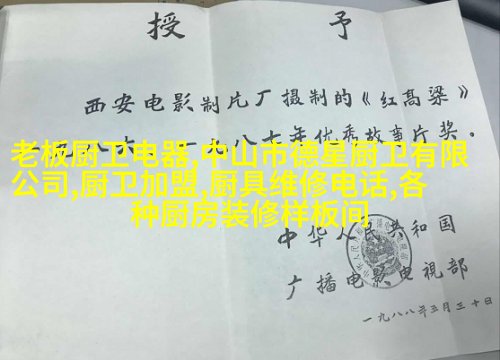 授 予
西安电影制片厂摄制的《红高粱》
八六 一九八七年优秀故事片奖。
老板厨卫电器,中山市德星厨卫有限
公司,厨卫加盟,厨具维修电话,各
种厨房装修样板间
中华人民共和国
广播电影电视部
一九八八年三月三十日